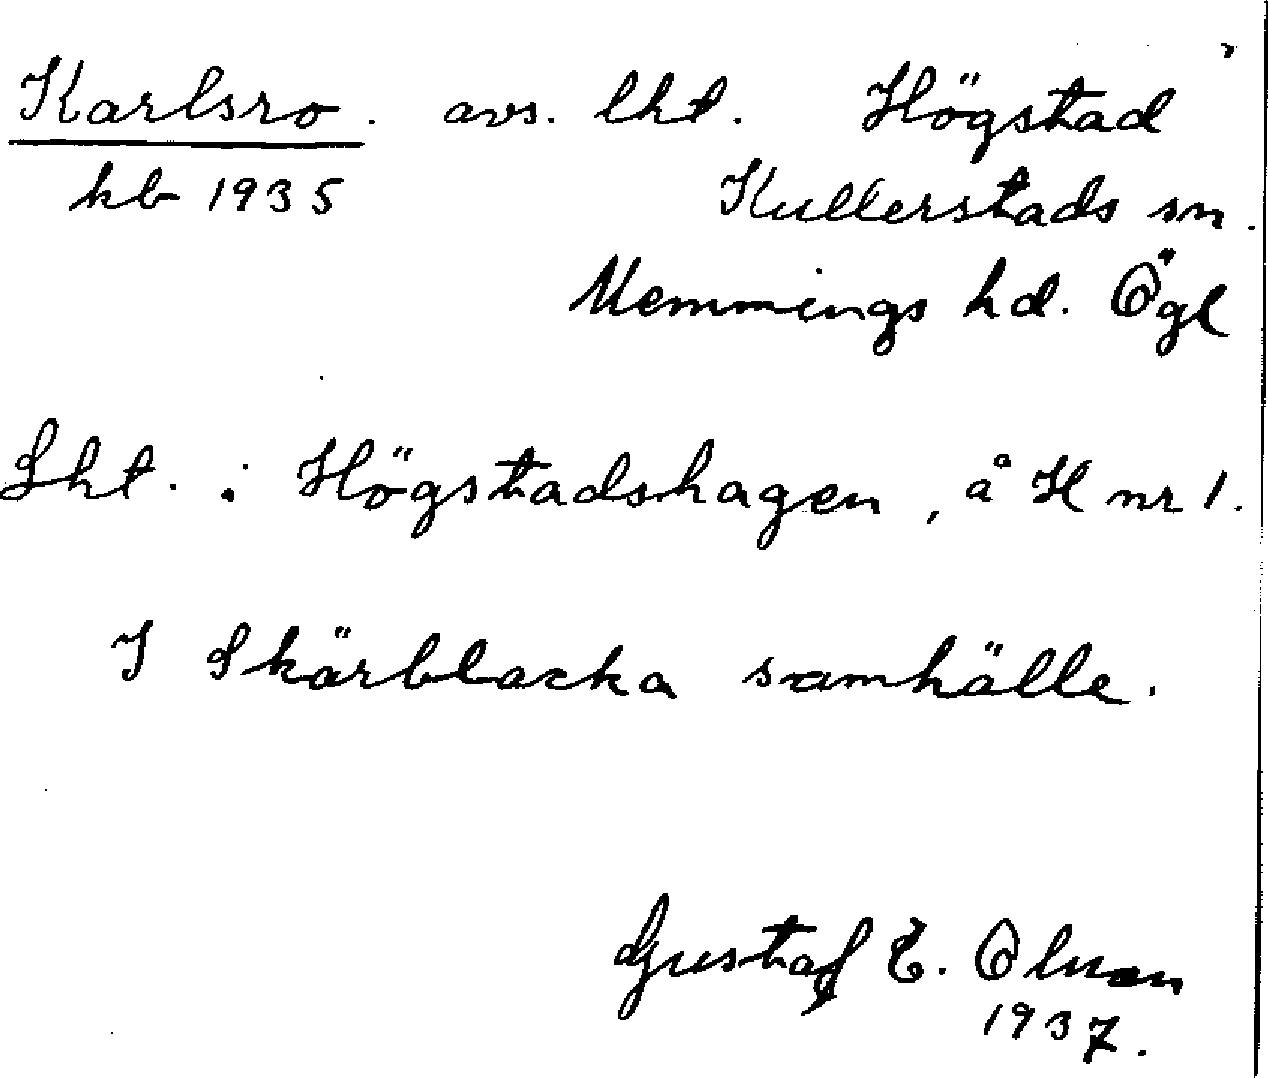 Karlsro. avs. lht. Högstad
kb 1935 Kullerstads sn.
Memmings hd. Ögl
Lht. i Högstadshagen, å H nr 1.
I Skärblacka samhälle.
Gustaf E. Olson
1937.